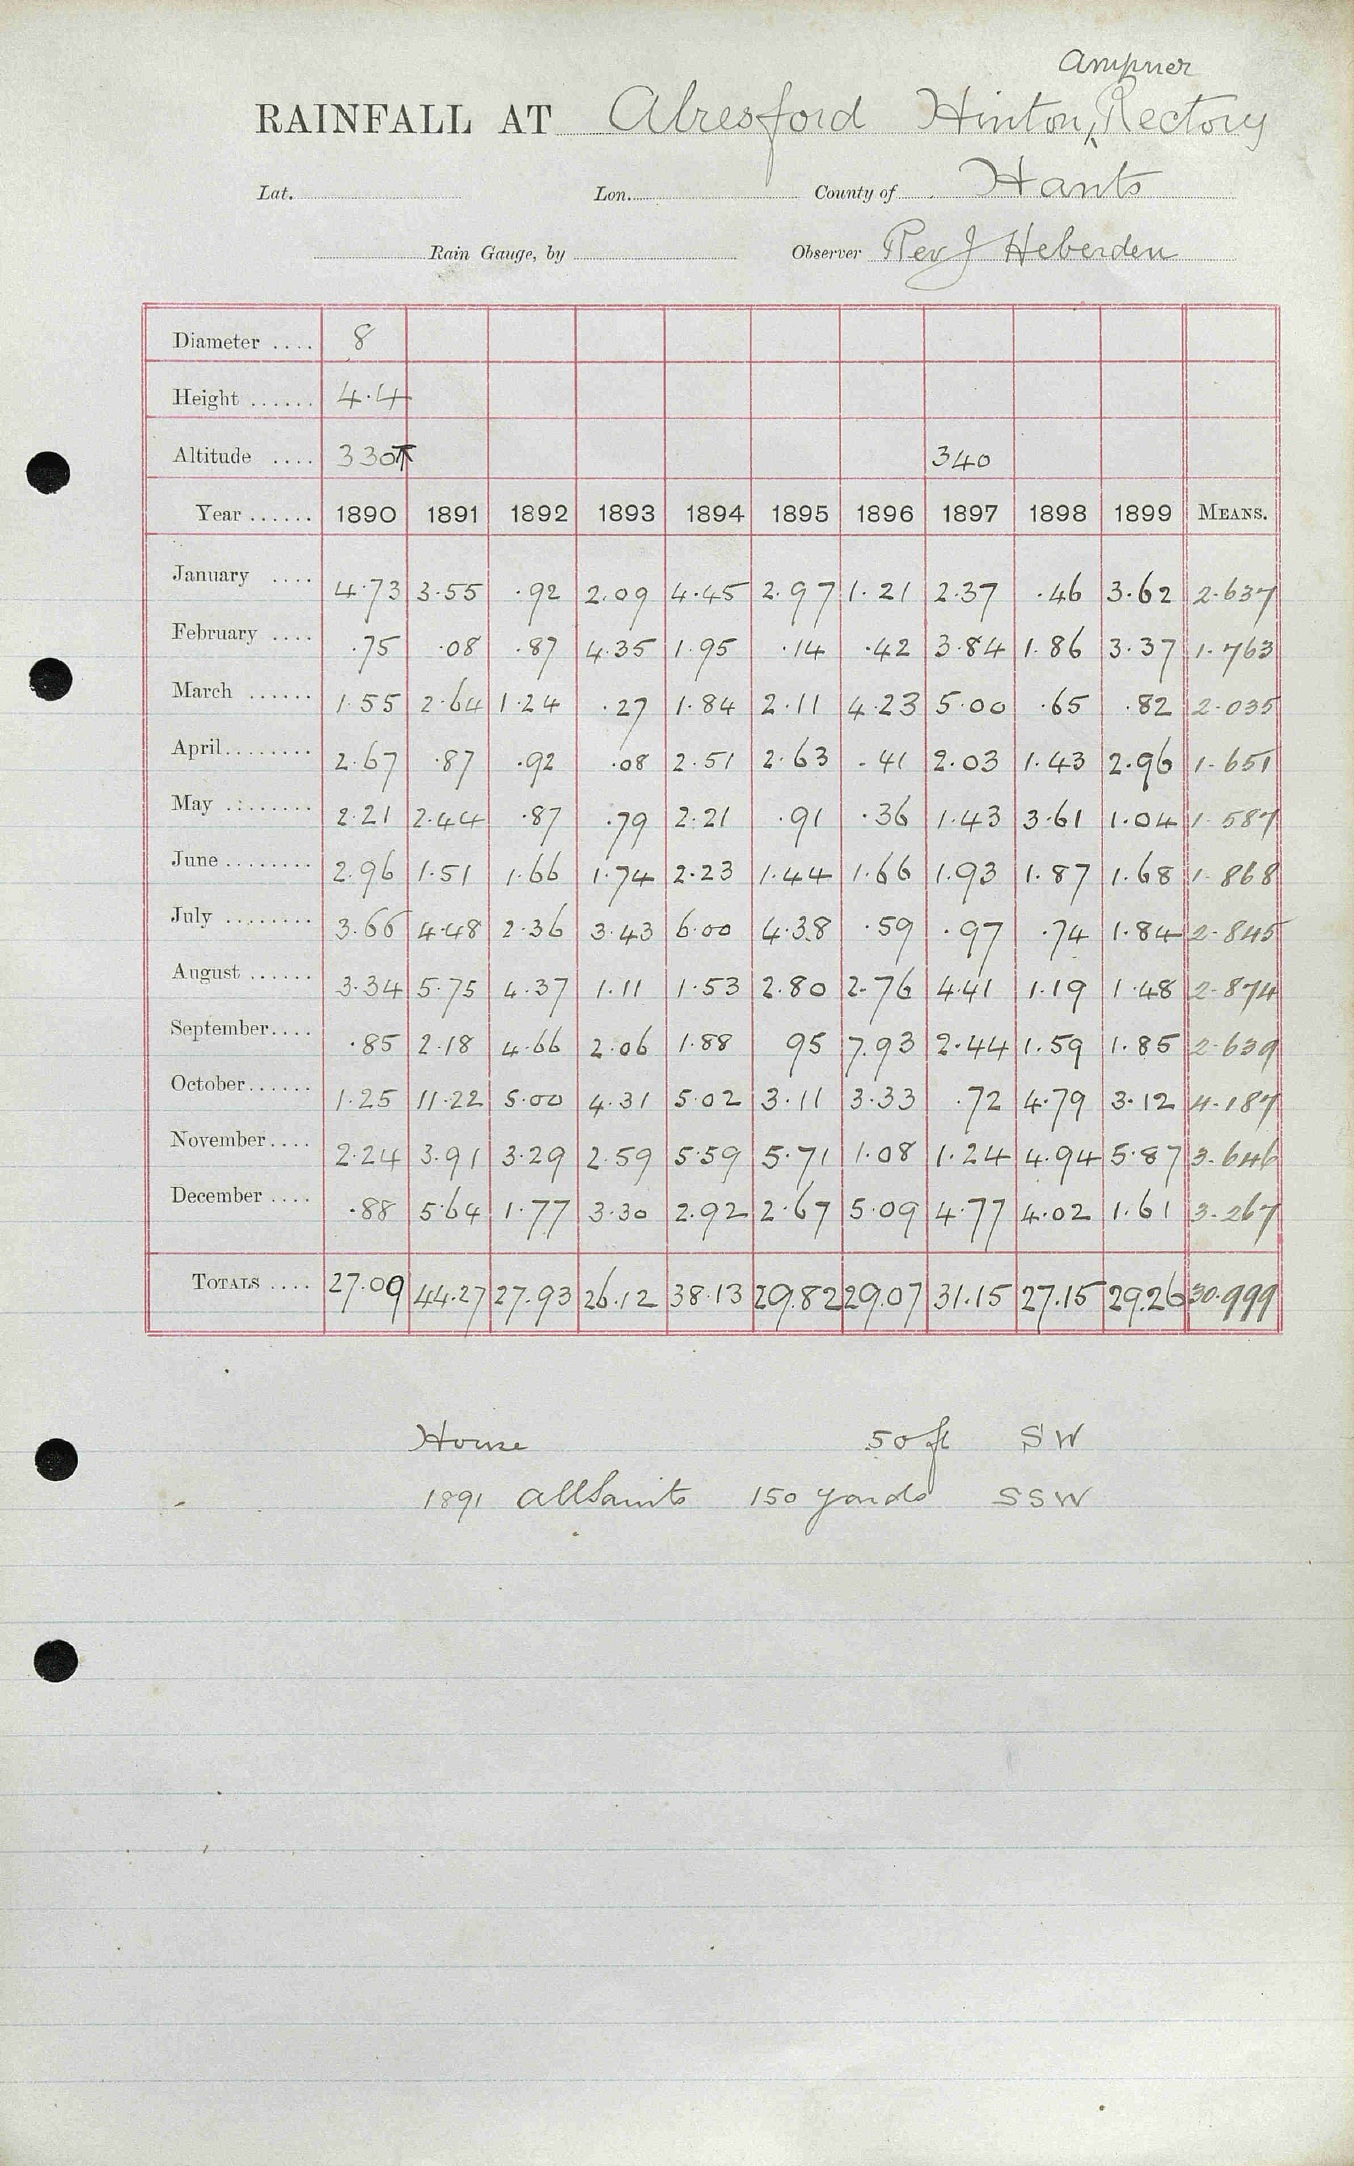 Ampner
RAINFALL AT Alresford Hinton, Rectory
Lat. Lon. County of Hants
Rain Gauge, by Observer Rev J Heberden
Diameter .... 8
Height ...... 4.4
Altitude .... 330 340
Year ...... 1890 1891 1892 1893 1894 1895 1896 1897 1898 1899 MEANS.
January .... 4.73 3.55 .92 2.09 4.45 2.97 1.21 2.37 .46 3.62 2.637
February .... .75 .08 .87 4.35 1.95 .14 .42 3.84 1.86 3.37 1.763
March ...... 1.55 2.64 1.24 .27 1.84 2.11 4.23 5.00 .65 .82 2.035
April ........ 2.67 .87 .92 .08 2.51 2.63 .41 2.03 1.43 2.96 1.651
May ........ 2.21 2.44 .87 .79 2.21 .91 .36 1.43 3.61 1.04 1.587
June ........ 2.96 1.51 1.66 1.74 2.23 1.44 1.66 1.93 1.87 1.68 1.868
July ........ 3.66 4.48 2.36 3.43 6.00 4.38 .59 .97 .74 1.84 2.845
August ...... 3.34 5.75 4.37 1.11 1.53 2.80 2.76 4.41 1.19 1.48 2.874
September.... .85 2.18 4.66 2.06 1.88 95 7.93 2.44 1.59 1.85 2.639
October...... 1.25 11.22 5.00 4.31 5.02 3.11 3.33 .72 4.79 3.12 4.187
November.... 2.24 3.91 3.29 2.59 5.59 5.71 1.08 1.24 4.94 5.87 3.646
December .... .88 5.64 1.77 3.30 2.92 2.67 5.09 4.77 4.02 1.61 3.267
TOTALS .... 27.09 44.27 27.93 26.12 38.13 29.82 29.07 31.15 27.15 29.26 30.999
House 50 ft SW
1891 All Saints 150 yards SSW